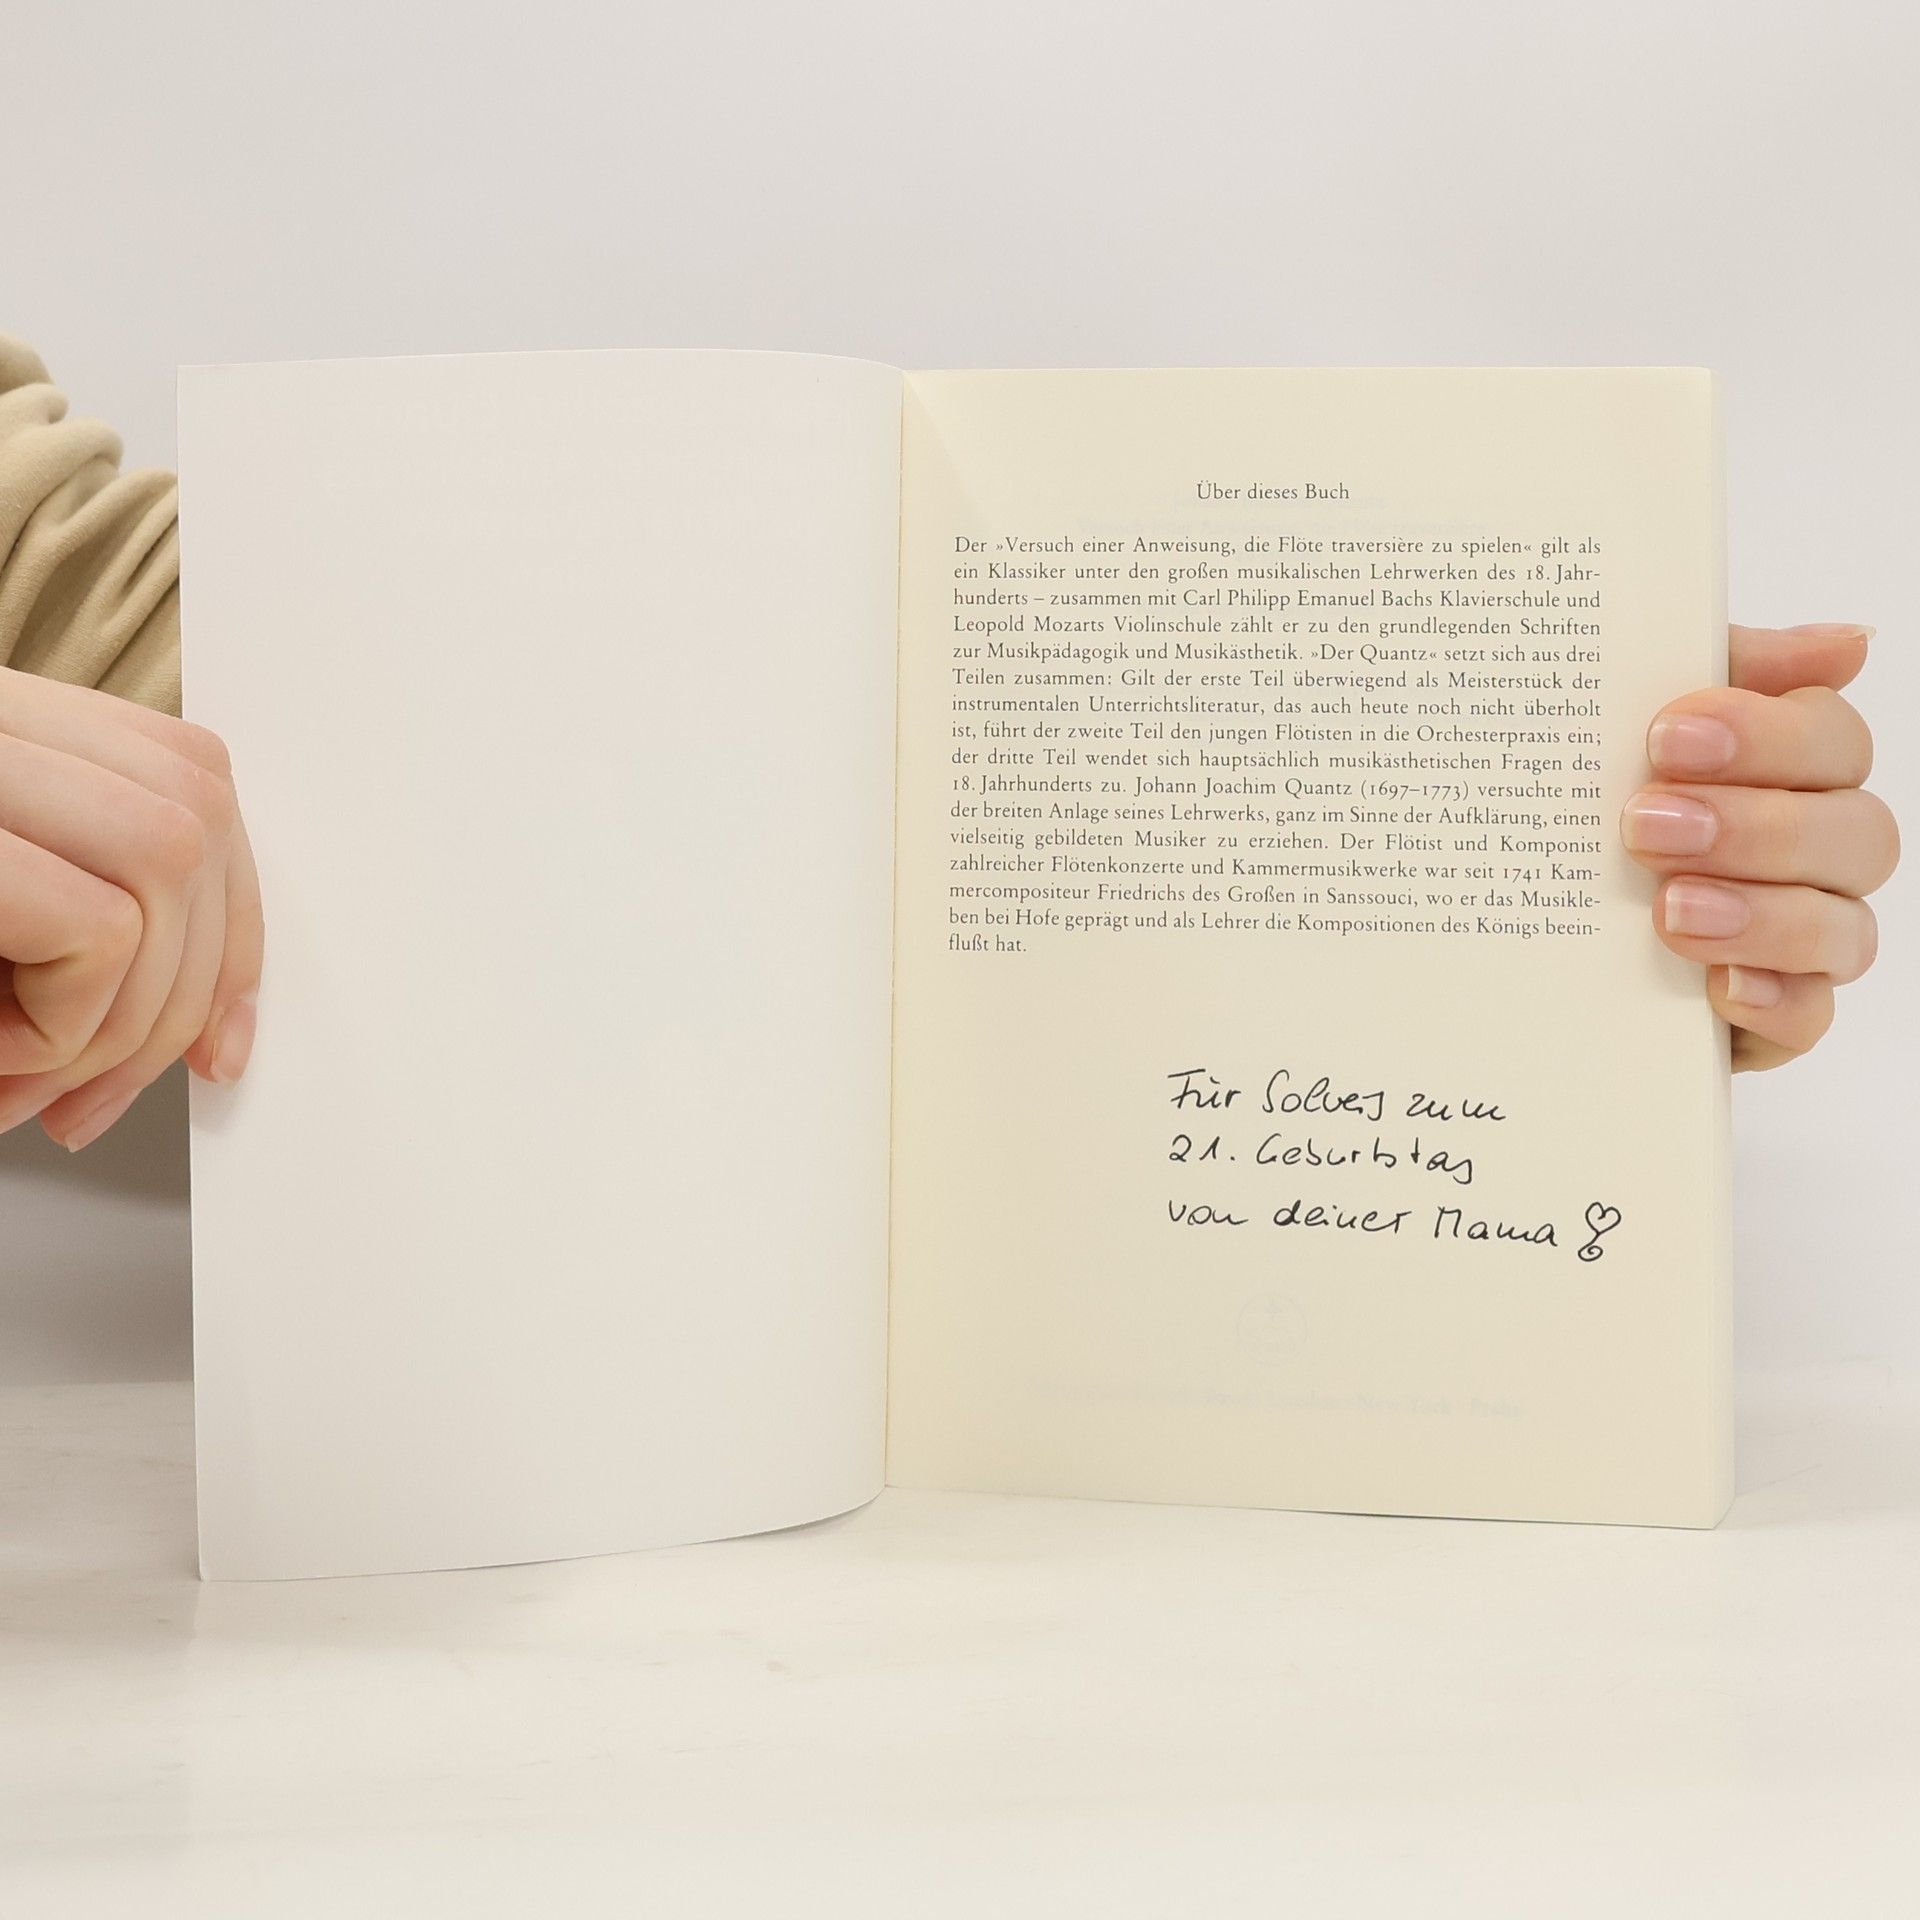 Über dieses Buch
Der »Versuch einer Anweisung, die Flöte traversière zu spielen« gilt als
ein Klassiker unter den großen musikalischen Lehrwerken des 18. Jahr-
hunderts – zusammen mit Carl Philipp Emanuel Bachs Klavierschule und
Leopold Mozarts Violinschule zählt er zu den grundlegenden Schriften
zur Musikpädagogik und Musikästhetik. »Der Quantz« setzt sich aus drei
Teilen zusammen: Gilt der erste Teil überwiegend als Meisterstück der
instrumentalen Unterrichtsliteratur, das auch heute noch nicht überholt
ist, führt der zweite Teil den jungen Flötisten in die Orchesterpraxis ein;
der dritte Teil wendet sich hauptsächlich musikästhetischen Fragen des
18. Jahrhunderts zu. Johann Joachim Quantz (1697–1773) versuchte mit
der breiten Anlage seines Lehrwerks, ganz im Sinne der Aufklärung, einen
vielseitig gebildeten Musiker zu erziehen. Der Flötist und Komponist
zahlreicher Flötenkonzerte und Kammermusikwerke war seit 1741 Kam-
mercompositeur Friedrichs des Großen in Sanssouci, wo er das Musikle-
ben bei Hofe geprägt und als Lehrer die Kompositionen des Königs beein-
flußt hat.
Für Solveij zum
21. Geburtstag
von deiner Mama